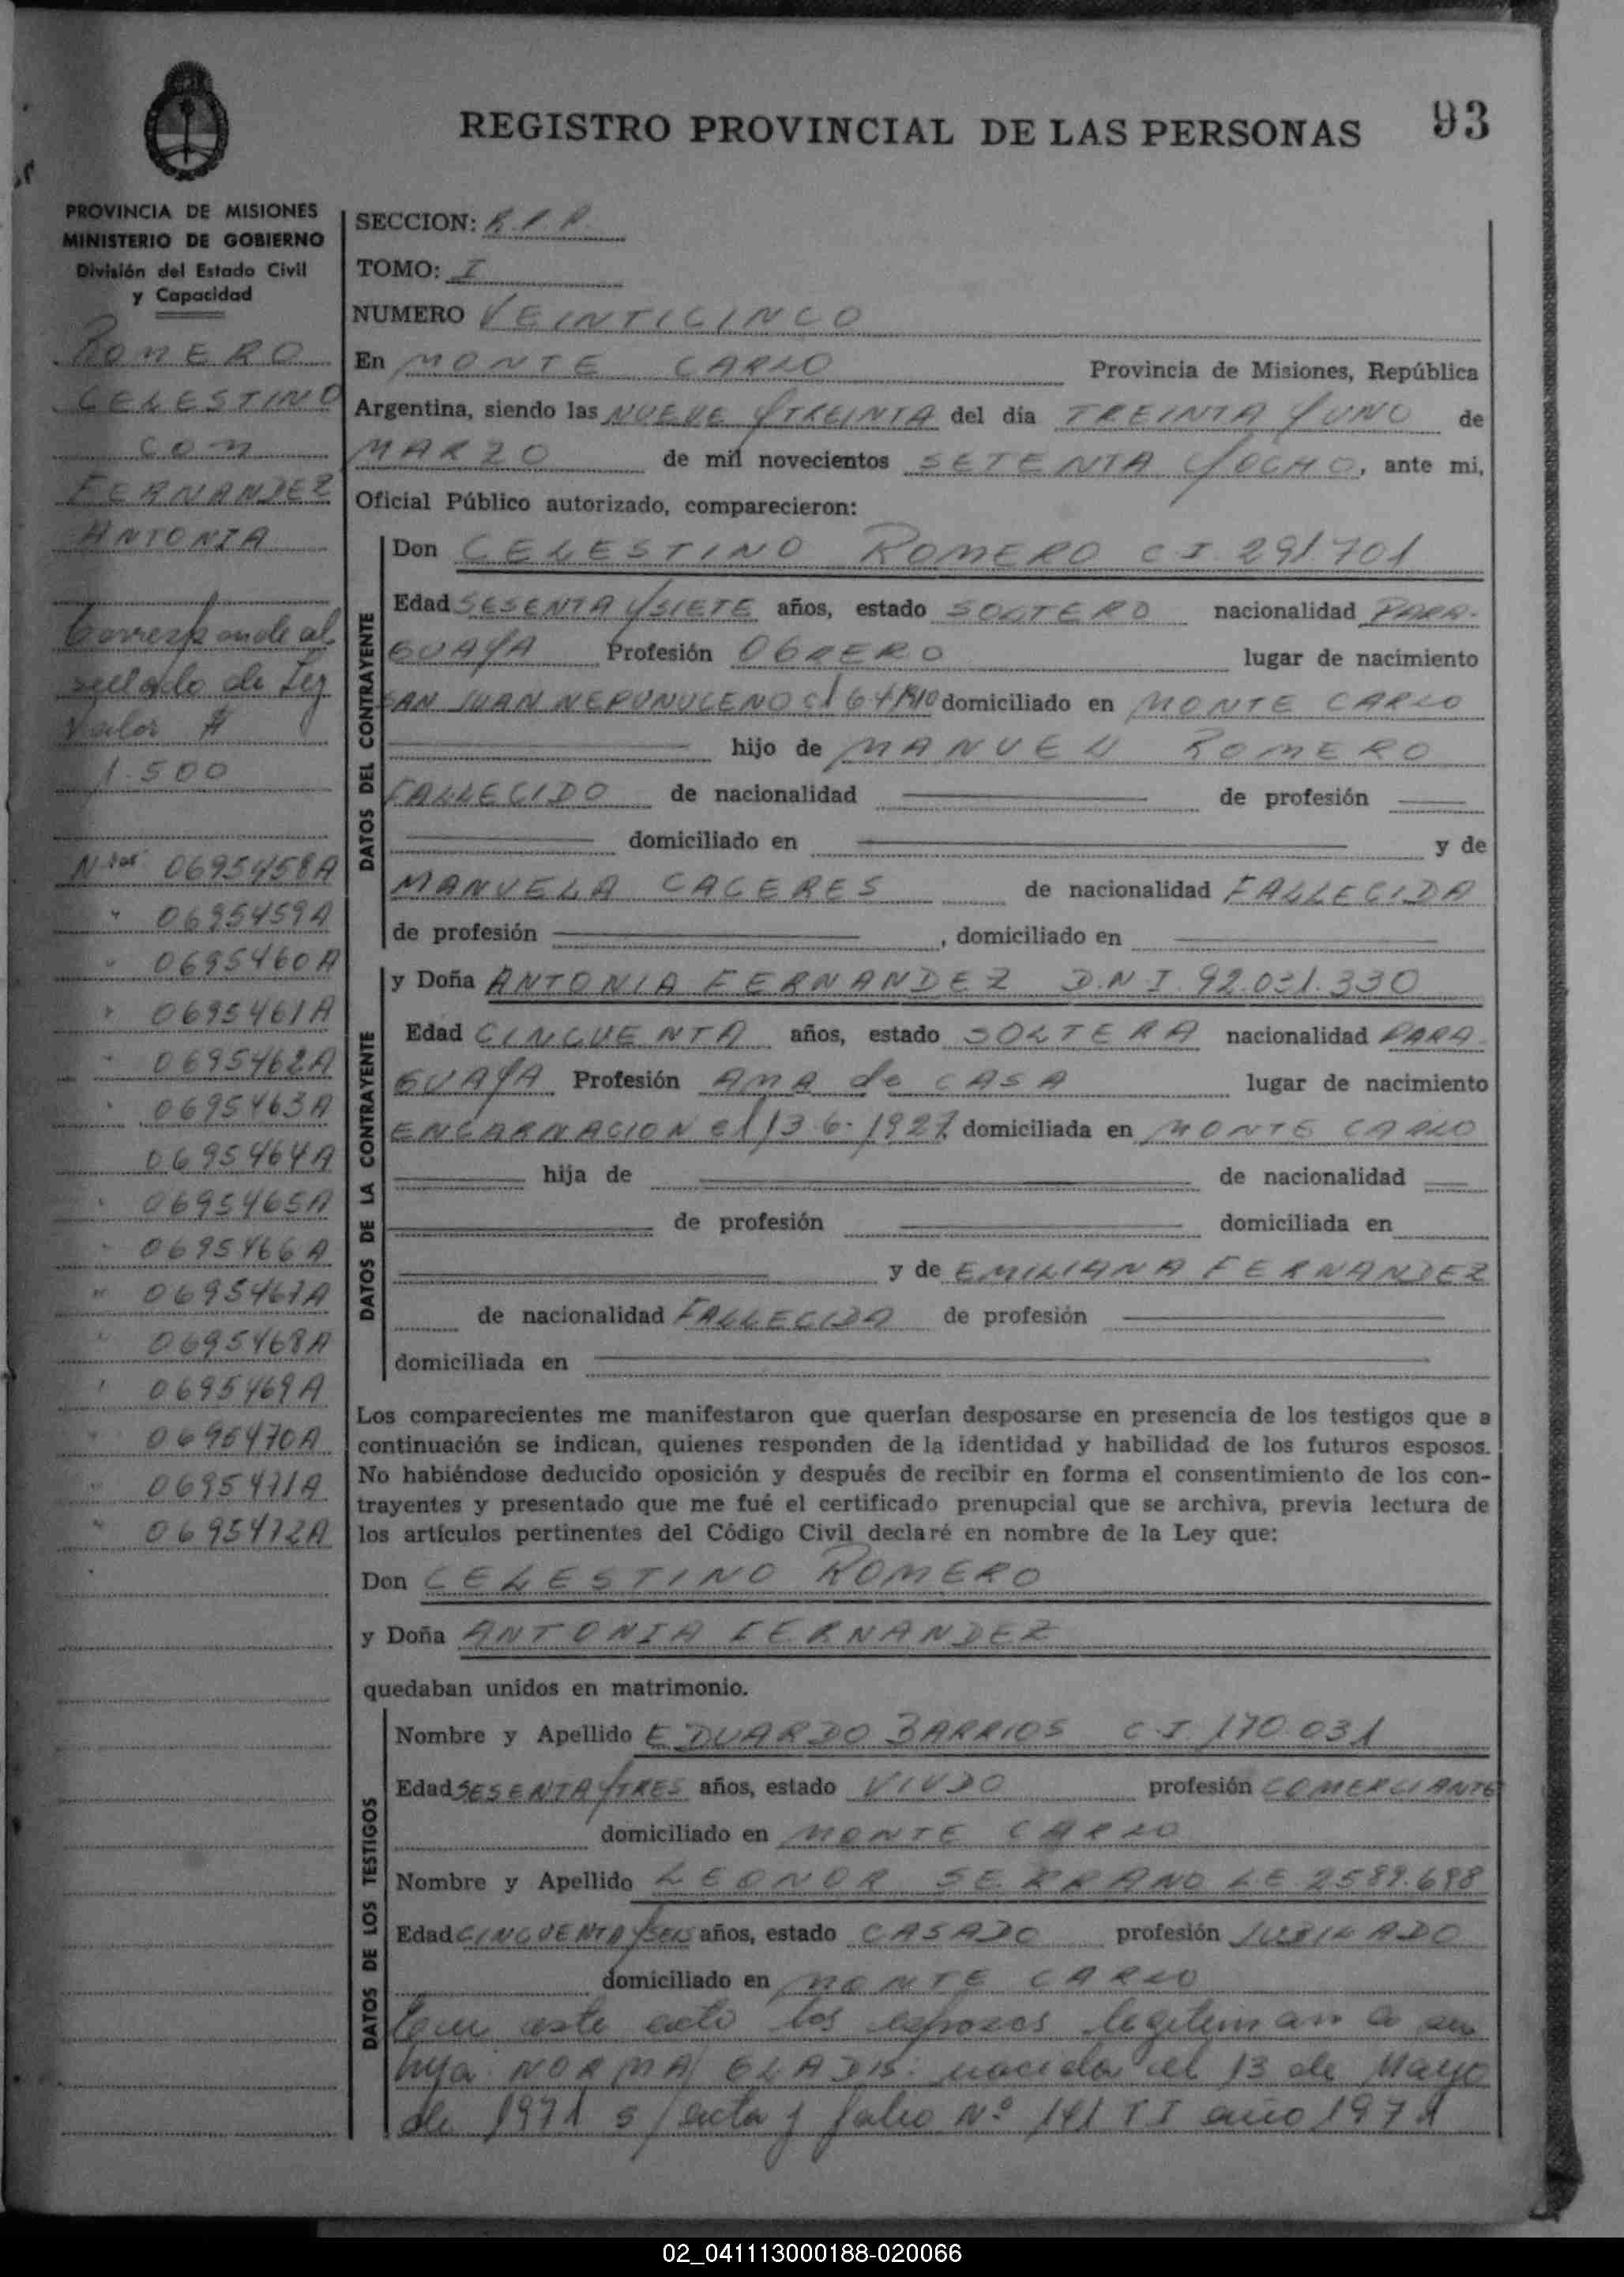 REGISTRO PROVINCIAL DE LAS PERSONAS
93
PROVINCIA DE MISIONES
MINISTERIO DE GOBIERNO
División del Estado Civil
y Capacidad
ROMERO
CELESTINO
con
FERNANDEZ
ANTONIA
Corresponde al
sellado de Ley
Valor $
1.500
Nros 0695458A
" 0695459A
" 0695460A
" 0695461A
" 0695462A
" 0695463A
0695464A
" 0695465A
" 0695466A
" 0695467A
" 0695468A
" 0695469A
" 0695470A
" 0695471A
" 0695472A
SECCION: R.P.P.
TOMO: I
NUMERO VEINTICINCO
En MONTE CARLO Provincia de Misiones, República
Argentina, siendo las NUEVE Y TREINTA del día TREINTA Y UNO de
MARZO de mil novecientos SETENTA Y OCHO, ante mi,
Oficial Público autorizado, comparecieron:
DATOS DEL CONTRAYENTE
Don CELESTINO ROMERO C I. 291.701
Edad SESENTA Y SIETE años, estado SOLTERO nacionalidad PARA-
GUAYA Profesión OBRERO lugar de nacimiento
SAN JUAN NEPUNUCENO el 6-4-1910 domiciliado en MONTE CARLO
hijo de MANUEL ROMERO
FALLECIDO de nacionalidad de profesión
domiciliado en y de
MANUELA CACERES de nacionalidad FALLECIDA
de profesión , domiciliado en
DATOS DE LA CONTRAYENTE
y Doña ANTONIA FERNANDEZ D.N.I. 92.031.330
Edad CINCUENTA años, estado SOLTERA nacionalidad PARA-
GUAYA Profesión AMA de CASA lugar de nacimiento
ENCARNACION el 13-6-1927 domiciliada en MONTE CARLO
hija de de nacionalidad
de profesión domiciliada en
y de EMILIANA FERNANDEZ
de nacionalidad FALLECIDA de profesión
domiciliada en
Los comparecientes me manifestaron que querían desposarse en presencia de los testigos que a
continuación se indican, quienes responden de la identidad y habilidad de los futuros esposos.
No habiéndose deducido oposición y después de recibir en forma el consentimiento de los con-
trayentes y presentado que me fué el certificado prenupcial que se archiva, previa lectura de
los artículos pertinentes del Código Civil declaré en nombre de la Ley que:
Don CELESTINO ROMERO
y Doña ANTONIA FERNANDEZ
quedaban unidos en matrimonio.
DATOS DE LOS TESTIGOS
Nombre y Apellido EDUARDO BARRIOS C.I. 170.031
Edad SESENTA Y TRES años, estado VIUDO profesión COMERCIANTE
domiciliado en MONTE CARLO
Nombre y Apellido LEONOR SERRANO LE 2589.698
Edad CINCUENTA Y SEIS años, estado CASADO profesión JUBILADO
domiciliado en MONTE CARLO
este acto los esposos legitiman a su
hija NORMA GLADIS: nacida el 13 de Mayo
de 1971 s/ acta y folio Nº 141 T I año 1971
02_041113000188-020066